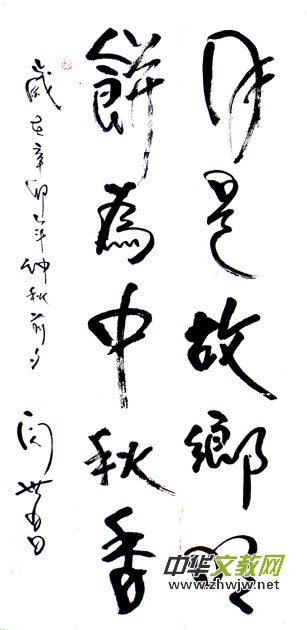 月是故鄉明
餅為中秋香
歲在辛卯年仲秋前夕
中华文教网
www.zhwjw.net